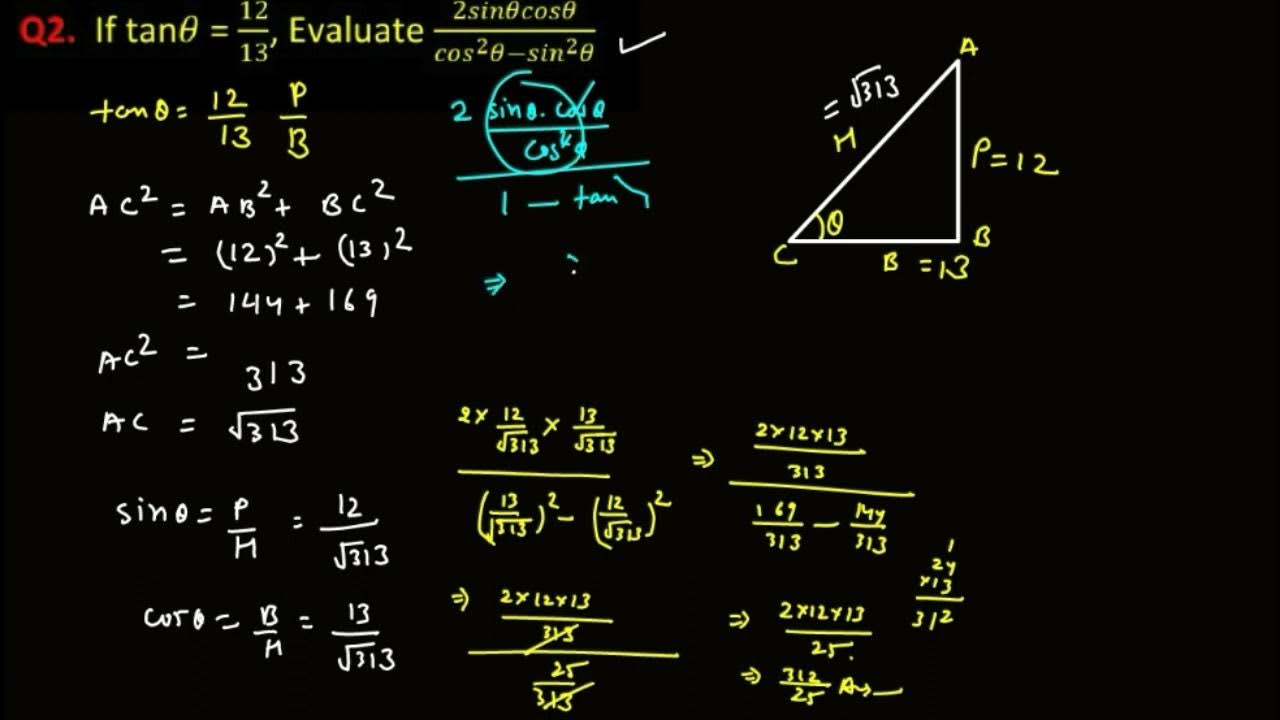 Q2. If tanθ = 12/13, Evaluate 2sinθcosθ / cos²θ−sin²θ
tanθ = 12/13 P/B
AC² = AB² + BC²
= (12)² + (13)²
= 144 + 169
AC² = 313
AC = √313
sinθ = P/H = 12/√313
cosθ = B/H = 13/√313
2 sinθ. cosθ / cos²θ
1 − tan
⇒
A
= √313
H
P = 12
θ
C
B
B = 13
2 × 12/√313 × 13/√313
(13/√313)² − (12/√313)²
⇒ 2×12×13 / 313
169/313 − 144/313
⇒ 2×12×13 / 313
25/313
⇒ 2×12×13 / 25.
⇒ 312/25 Ans
1
24
×13
312